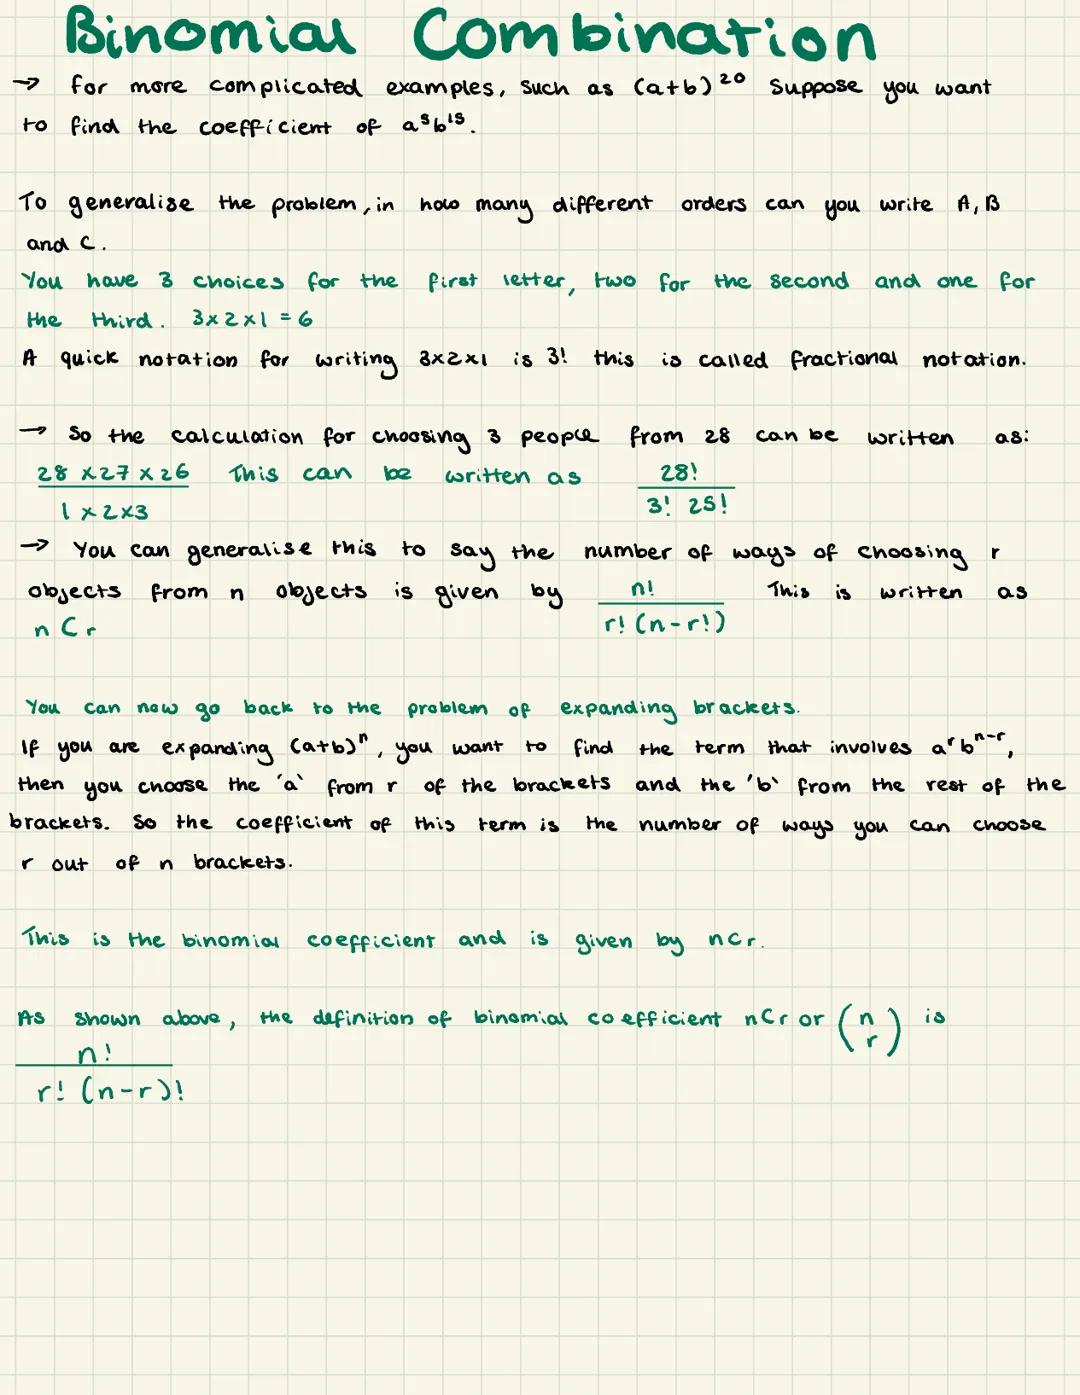 Binomial Combination
→ for more complicated examples, such as (a+b)²⁰ Suppose you want
to find the coefficient of a⁵b¹⁵.
To generalise the problem, in how many different orders can you write A, B
and C.
You have 3 choices for the first letter, two for the second and one for
the third. 3×2×1 = 6
A quick notation for writing 3×2×1 is 3! this is called fractional notation.
→ So the calculation for choosing 3 people from 28 can be written as:
28 × 27 × 26 / 1 × 2 × 3 This can be written as 28! / 3! 25!
→ You can generalise this to say the number of ways of choosing r
objects from n objects is given by n! / r! (n-r!) This is written as
nCr
You can now go back to the problem of expanding brackets.
If you are expanding (a+b)ⁿ, you want to find the term that involves aʳbⁿ⁻ʳ,
then you choose the 'a' from r of the brackets and the 'b' from the rest of the
brackets. So the coefficient of this term is the number of ways you can choose
r out of n brackets.
This is the binomial coefficient and is given by nCr.
As shown above, the definition of binomial coefficient nCr or (n r) is
n! / r! (n-r)!